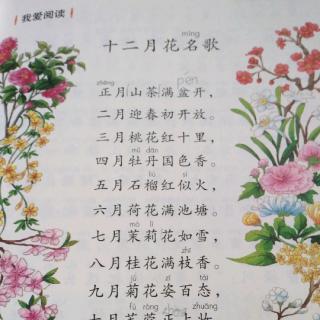 我爱阅读
míng
十二月花名歌
zhēng pén
正月山茶满盆开，
二月迎春初开放。
三月桃花红十里，
mǔ dān
四月牡丹国色香。
liú sì
五月石榴红似火，
六月荷花满池塘。
mò lì
七月茉莉花如雪，
八月桂花满枝香。
jú zī tài
九月菊花姿百态，
fú róng zhuāng
十月芙蓉正上妆